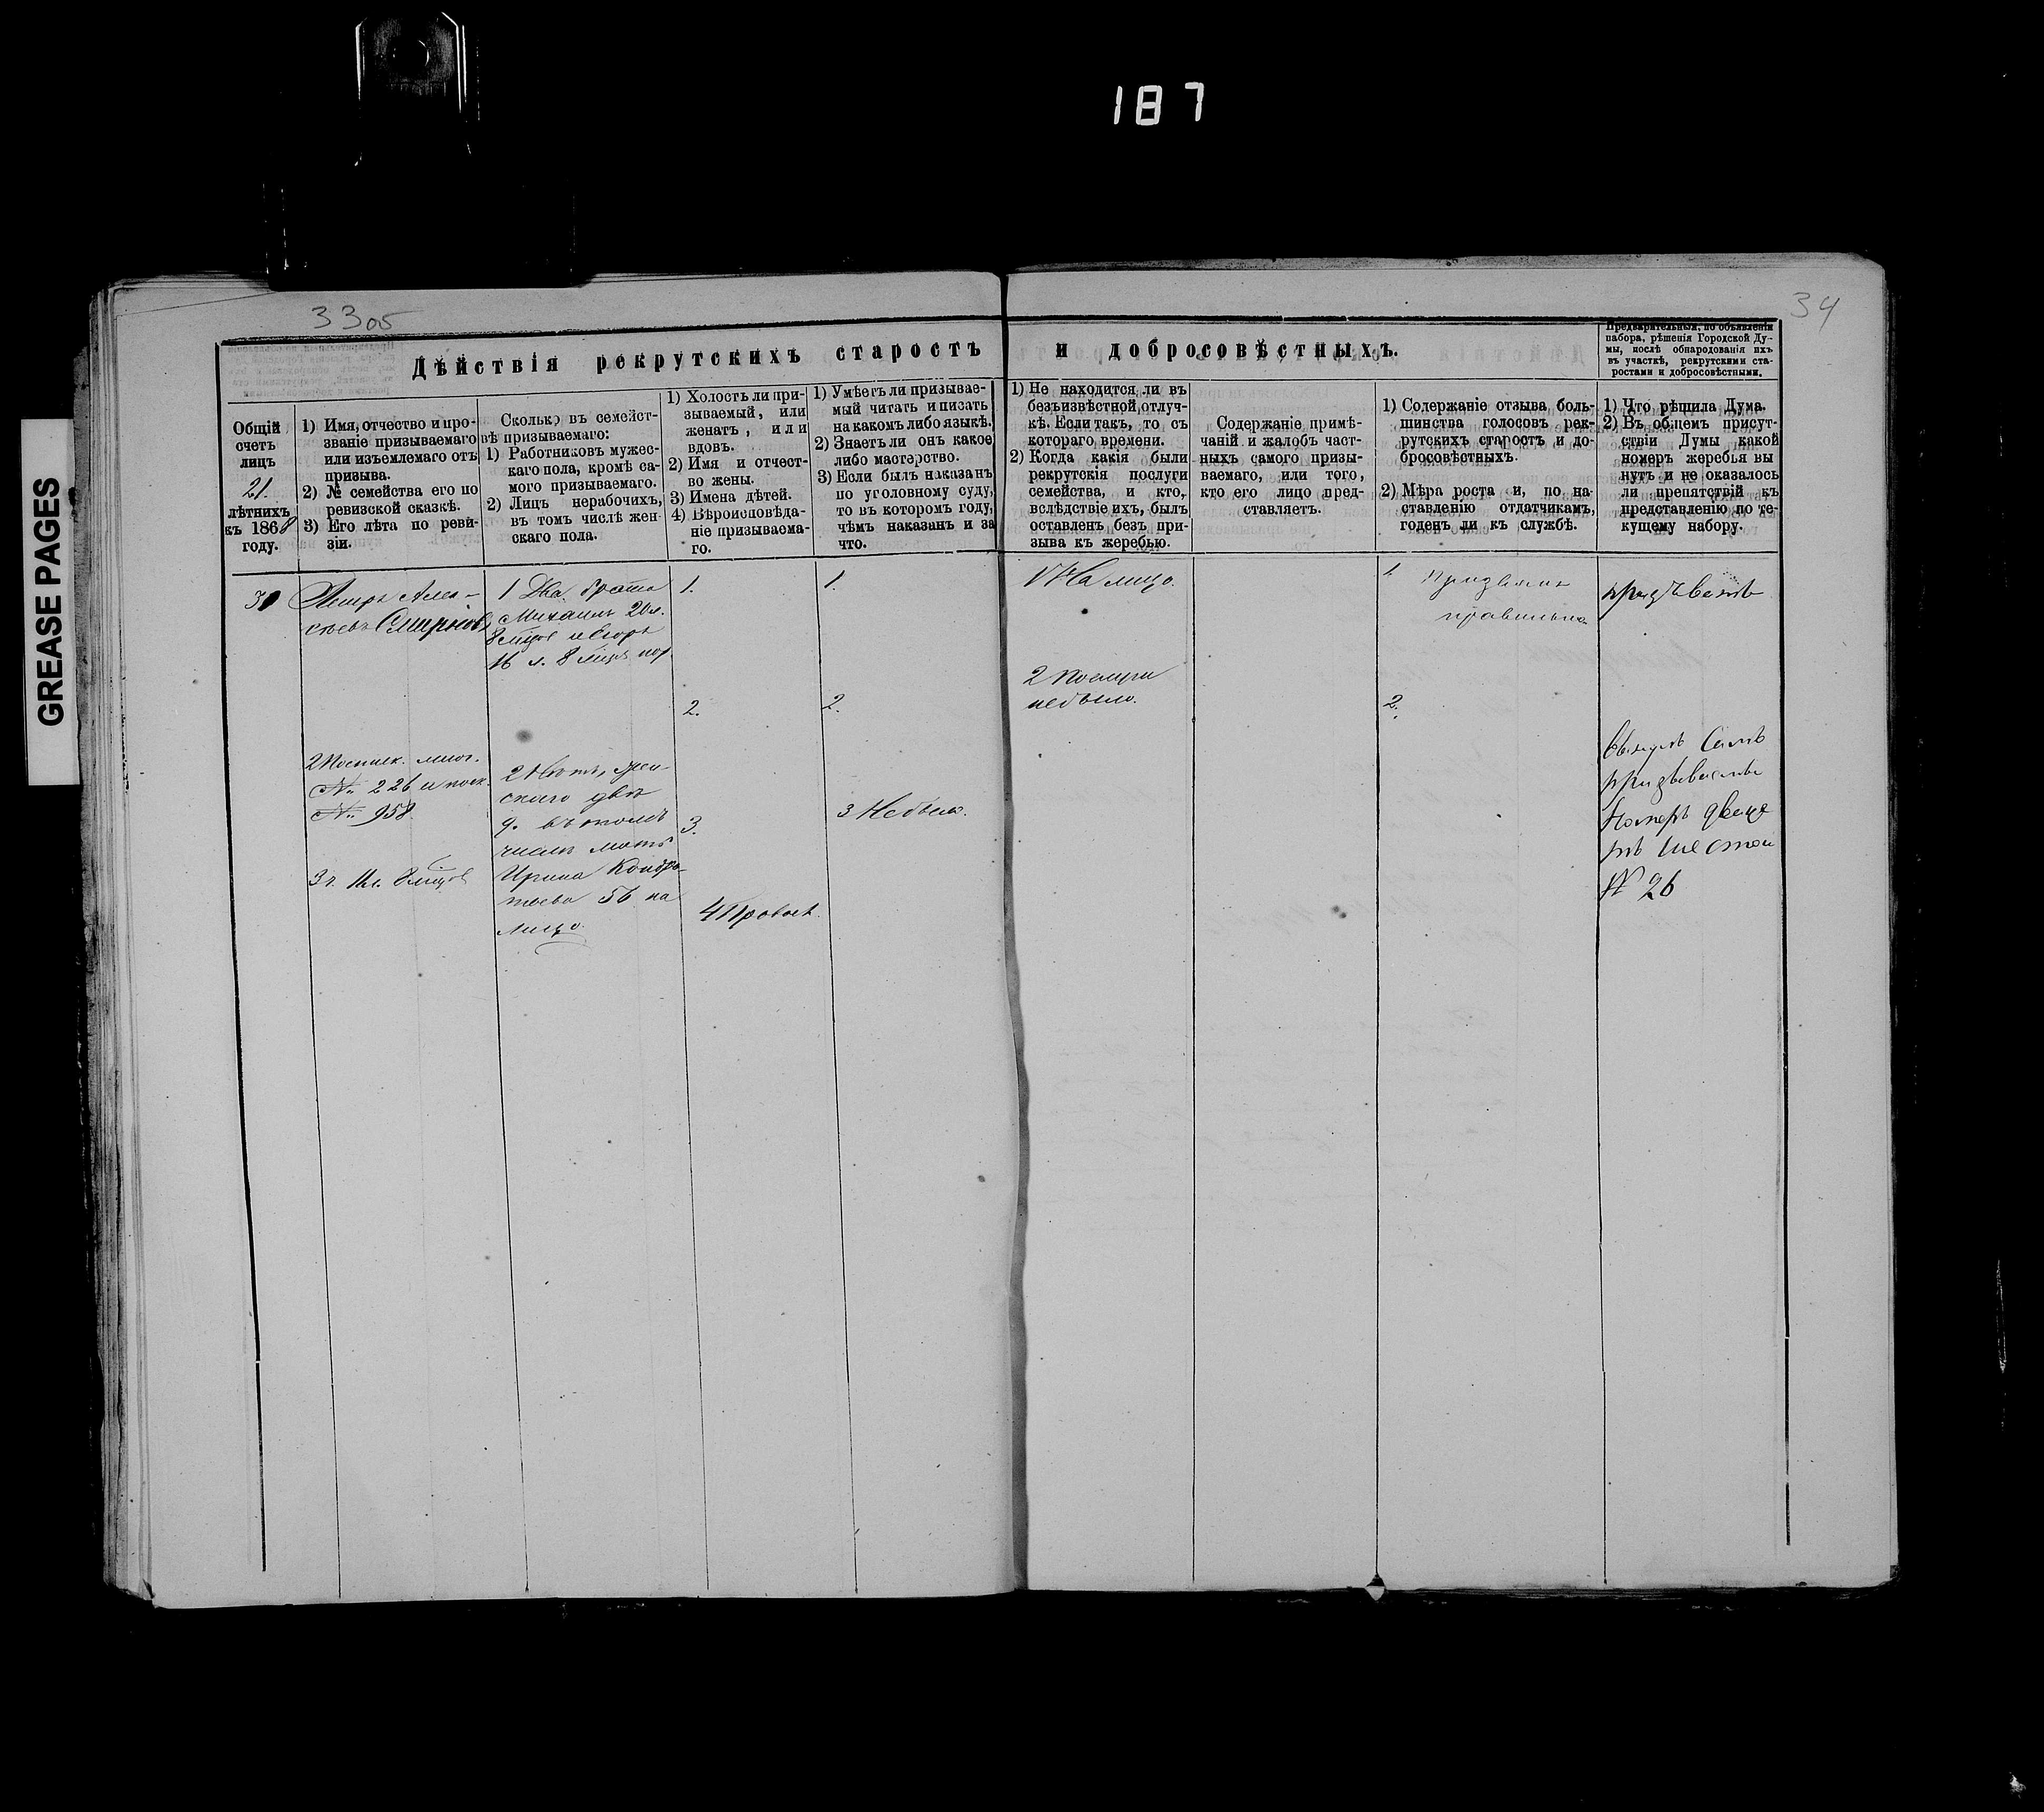 187
GREASE PAGES
33об
34
Дѣйствія рекрутскихъ старостъ и добросовѣстныхъ.
Предварительныя, по объявленіи
набора, рѣшенія Городской Ду-
мы, послѣ обнародованія ихъ
въ участкѣ, рекрутскими ста-
ростами и добросовѣстными.
Общій
счетъ
лицъ
21.
лѣтнихъ
къ 1868
году.
1) Имя, отчество и про-
званіе призываемаго
или изъемлемаго отъ
призыва.
2) № семейства его по
ревизской сказкѣ.
3) Его лѣта по реви-
зіи.
Сколько въ семейст-
вѣ призываемаго:
1) Работниковъ мужес-
каго пола, кромѣ са-
мого призываемаго.
2) Лицъ нерабочихъ,
въ томъ числѣ жен-
скаго пола.
1) Холостъ ли при-
зываемый, или
женатъ, или
вдовъ.
2) Имя и отчест-
во жены.
3) Имена дѣтей.
4) Вѣроисповѣда-
ніе призываема-
го.
1) Умѣетъ ли призывае-
мый читать и писать
на какомъ либо языкѣ.
2) Знаетъ ли онъ какое
либо мастерство.
3) Если былъ наказанъ
по уголовному суду,
то въ которомъ году,
чѣмъ наказанъ и за
что.
1) Не находится ли въ
безъизвѣстной отлуч-
кѣ. Если такъ, то съ
котораго времени.
2) Когда какія были
рекрутскія послуги
семейства, и кто,
вслѣдствіе ихъ, былъ
оставленъ безъ при-
зыва къ жеребью.
Содержаніе примѣ-
чаній и жалобъ част-
ныхъ самого призы-
ваемаго, или того,
кто его лицо пред-
ставляетъ.
1) Содержаніе отзыва боль-
шинства голосовъ рек-
рутскихъ старостъ и до-
бросовѣстныхъ.
2) Мѣра роста и, по на-
ставленію отдатчикамъ,
годенъ ли къ службѣ.
1) Что рѣшила Дума.
2) Въ общемъ присут-
ствіи Думы какой
номеръ жеребья вы
нутъ и не оказалось
ли препятствій къ
представленію по те-
кущему набору.
Петръ Алек-
сѣевъ Смирновъ
№ 226
№ 958.
1 Два брата
Михаилъ 20 л.
8 мцов и Егоръ
16 л. 8 мцов
2 женс-
скаго двѣ
д. въ томъ
числѣ мать
Ирина Кондра-
тьева 56 на
лицо
1.
2.
3.
4 Правосл.
1.
2.
3 Небыло.
1 На лицо.
2 Послуги
небыло.
1. Призванъ
правильно
2.
призывать
Вынулъ Самъ
призываемый
Номеръ двадца
ть шестой
№ 26